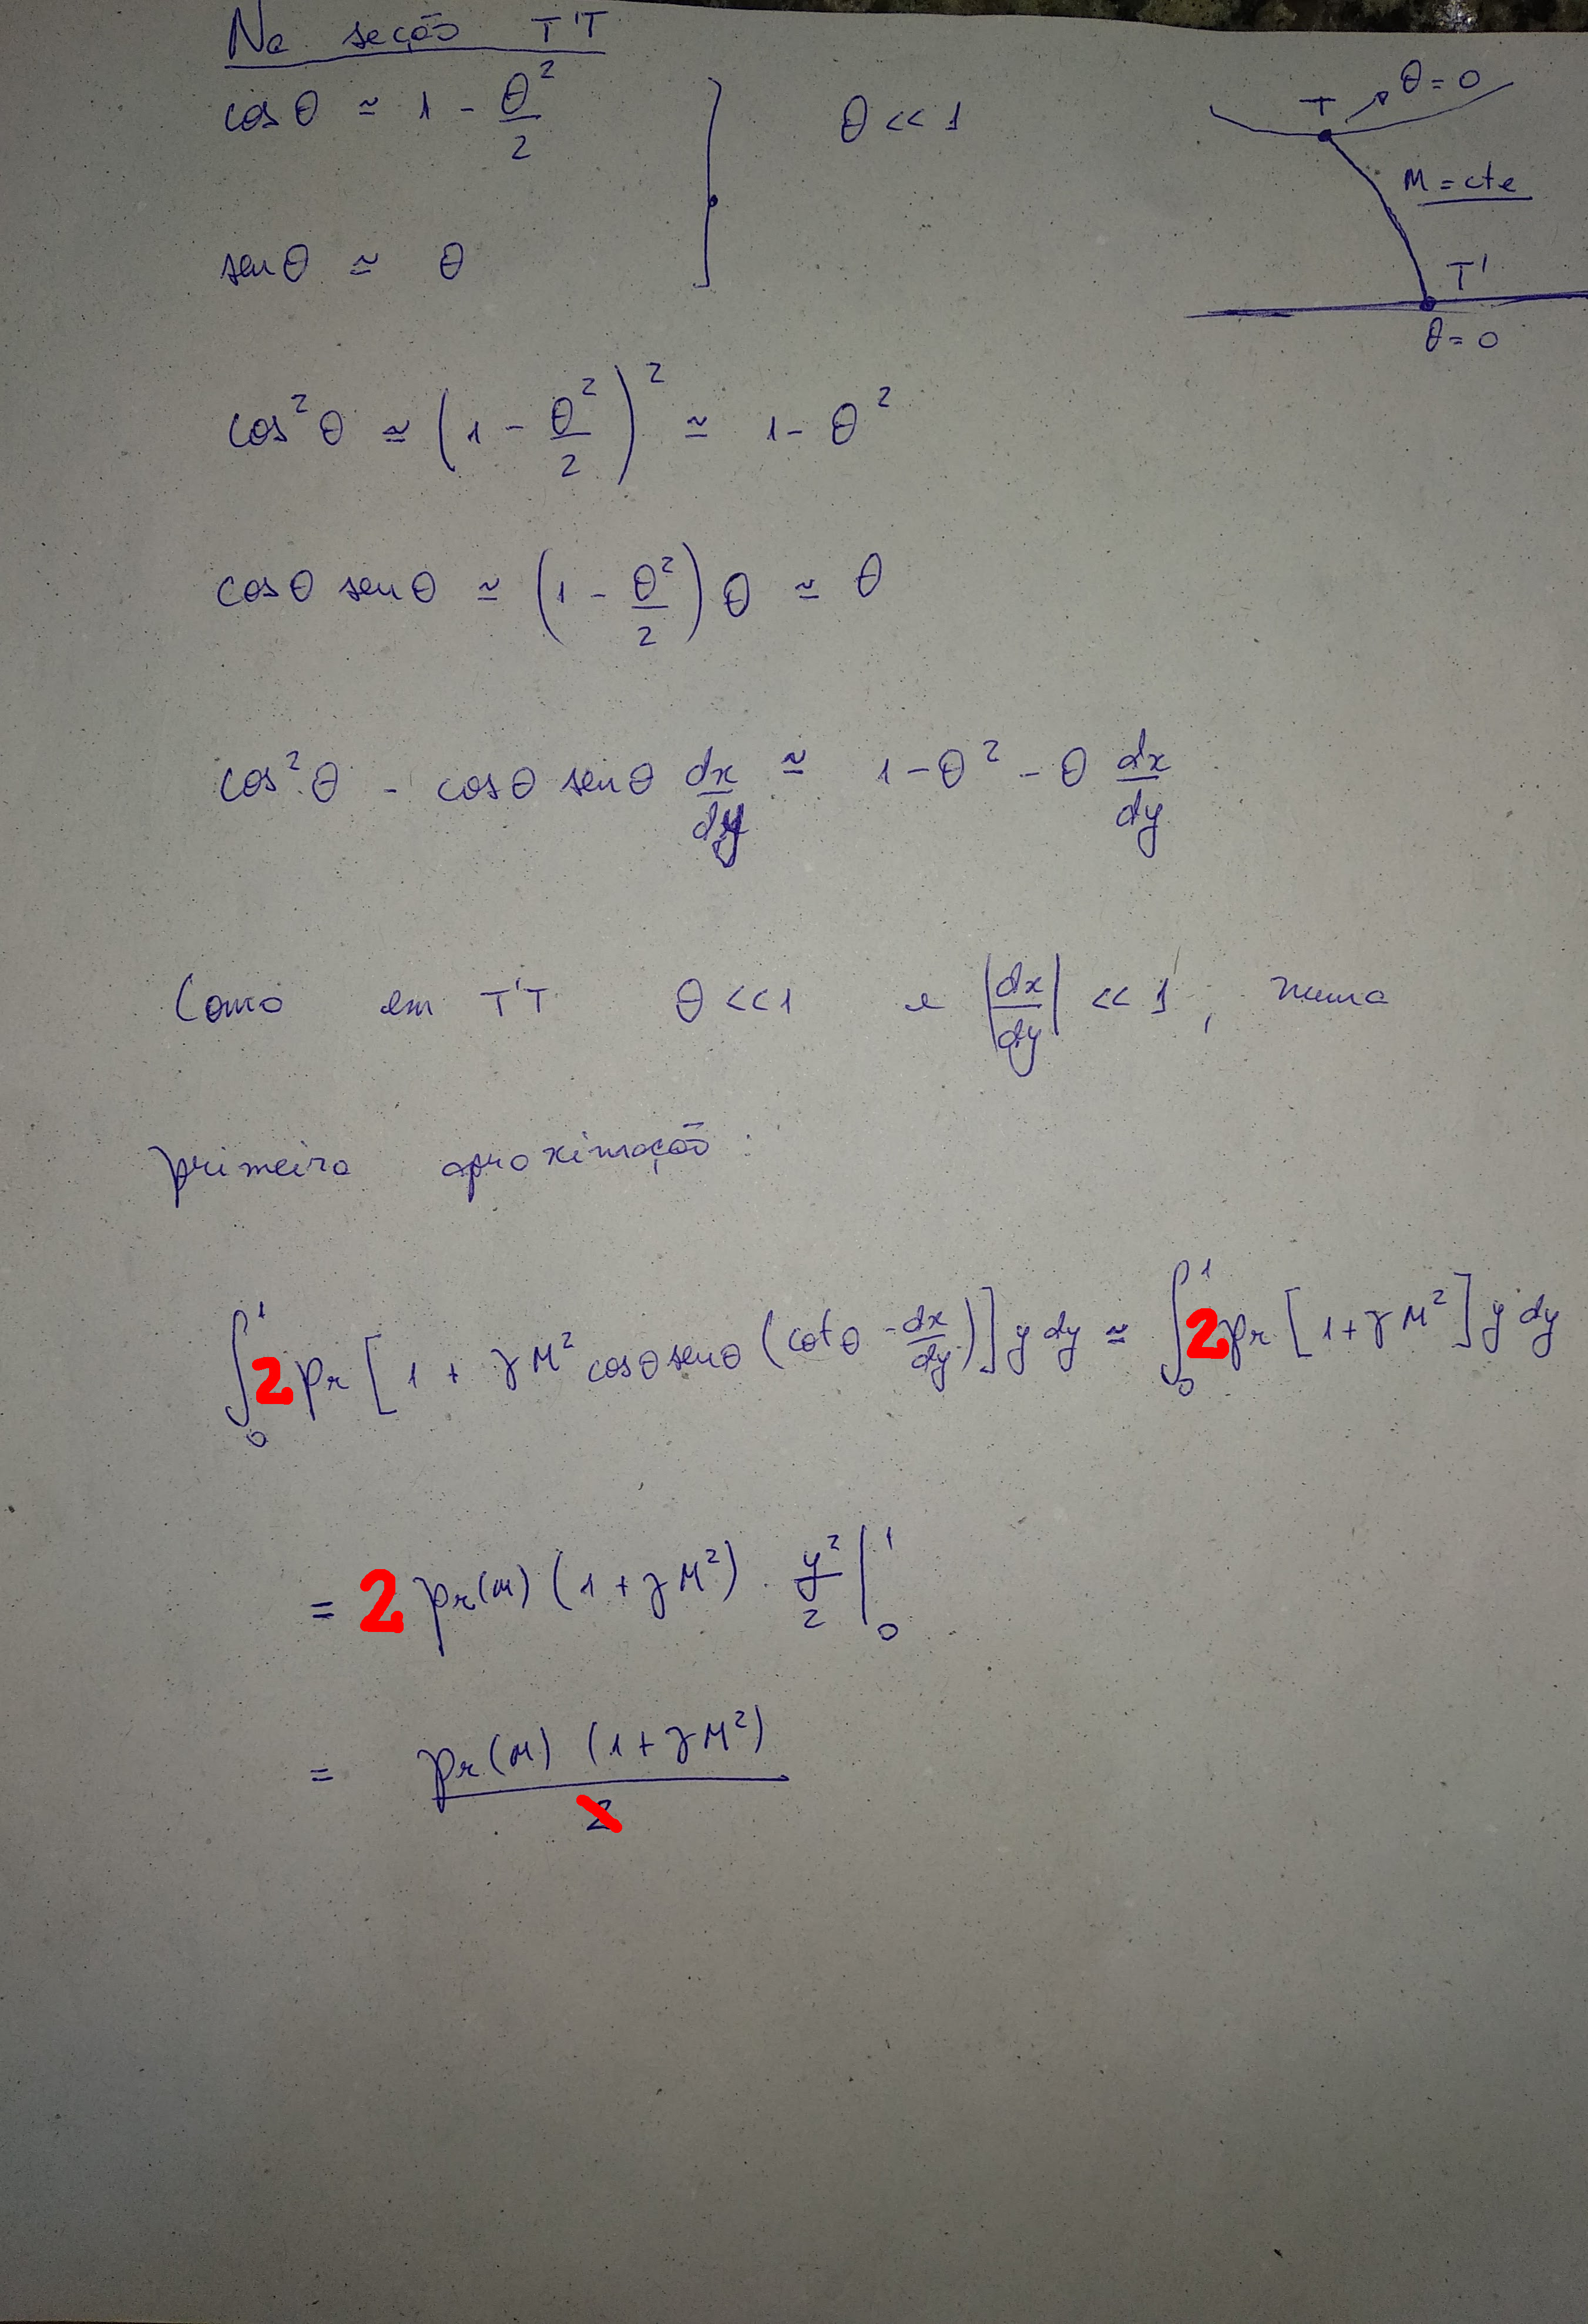 Na seção T'T
cos θ ≃ 1 - θ²/2
θ << 1
T → θ = 0
M = cte
T'
θ = 0
sen θ ≃ θ
cos² θ ≃ (1 - θ²/2)² ≃ 1 - θ²
cos θ sen θ ≃ (1 - θ²/2) θ ≃ θ
cos² θ - cos θ sen θ dx/dy ≃ 1 - θ² - θ dx/dy
Como em T'T θ << 1 e |dx/dy| << 1, numa
primeira aproximação:
∫₀¹ 2 pr [1 + γM² cos θ sen θ (cot θ - dx/dy)] y dy ≃ ∫₀¹ 2 pr [1 + γM²] y dy
= 2 pr(M) (1 + γM²) . y²/2 |₀¹
= pr(M) (1 + γM²) / 2